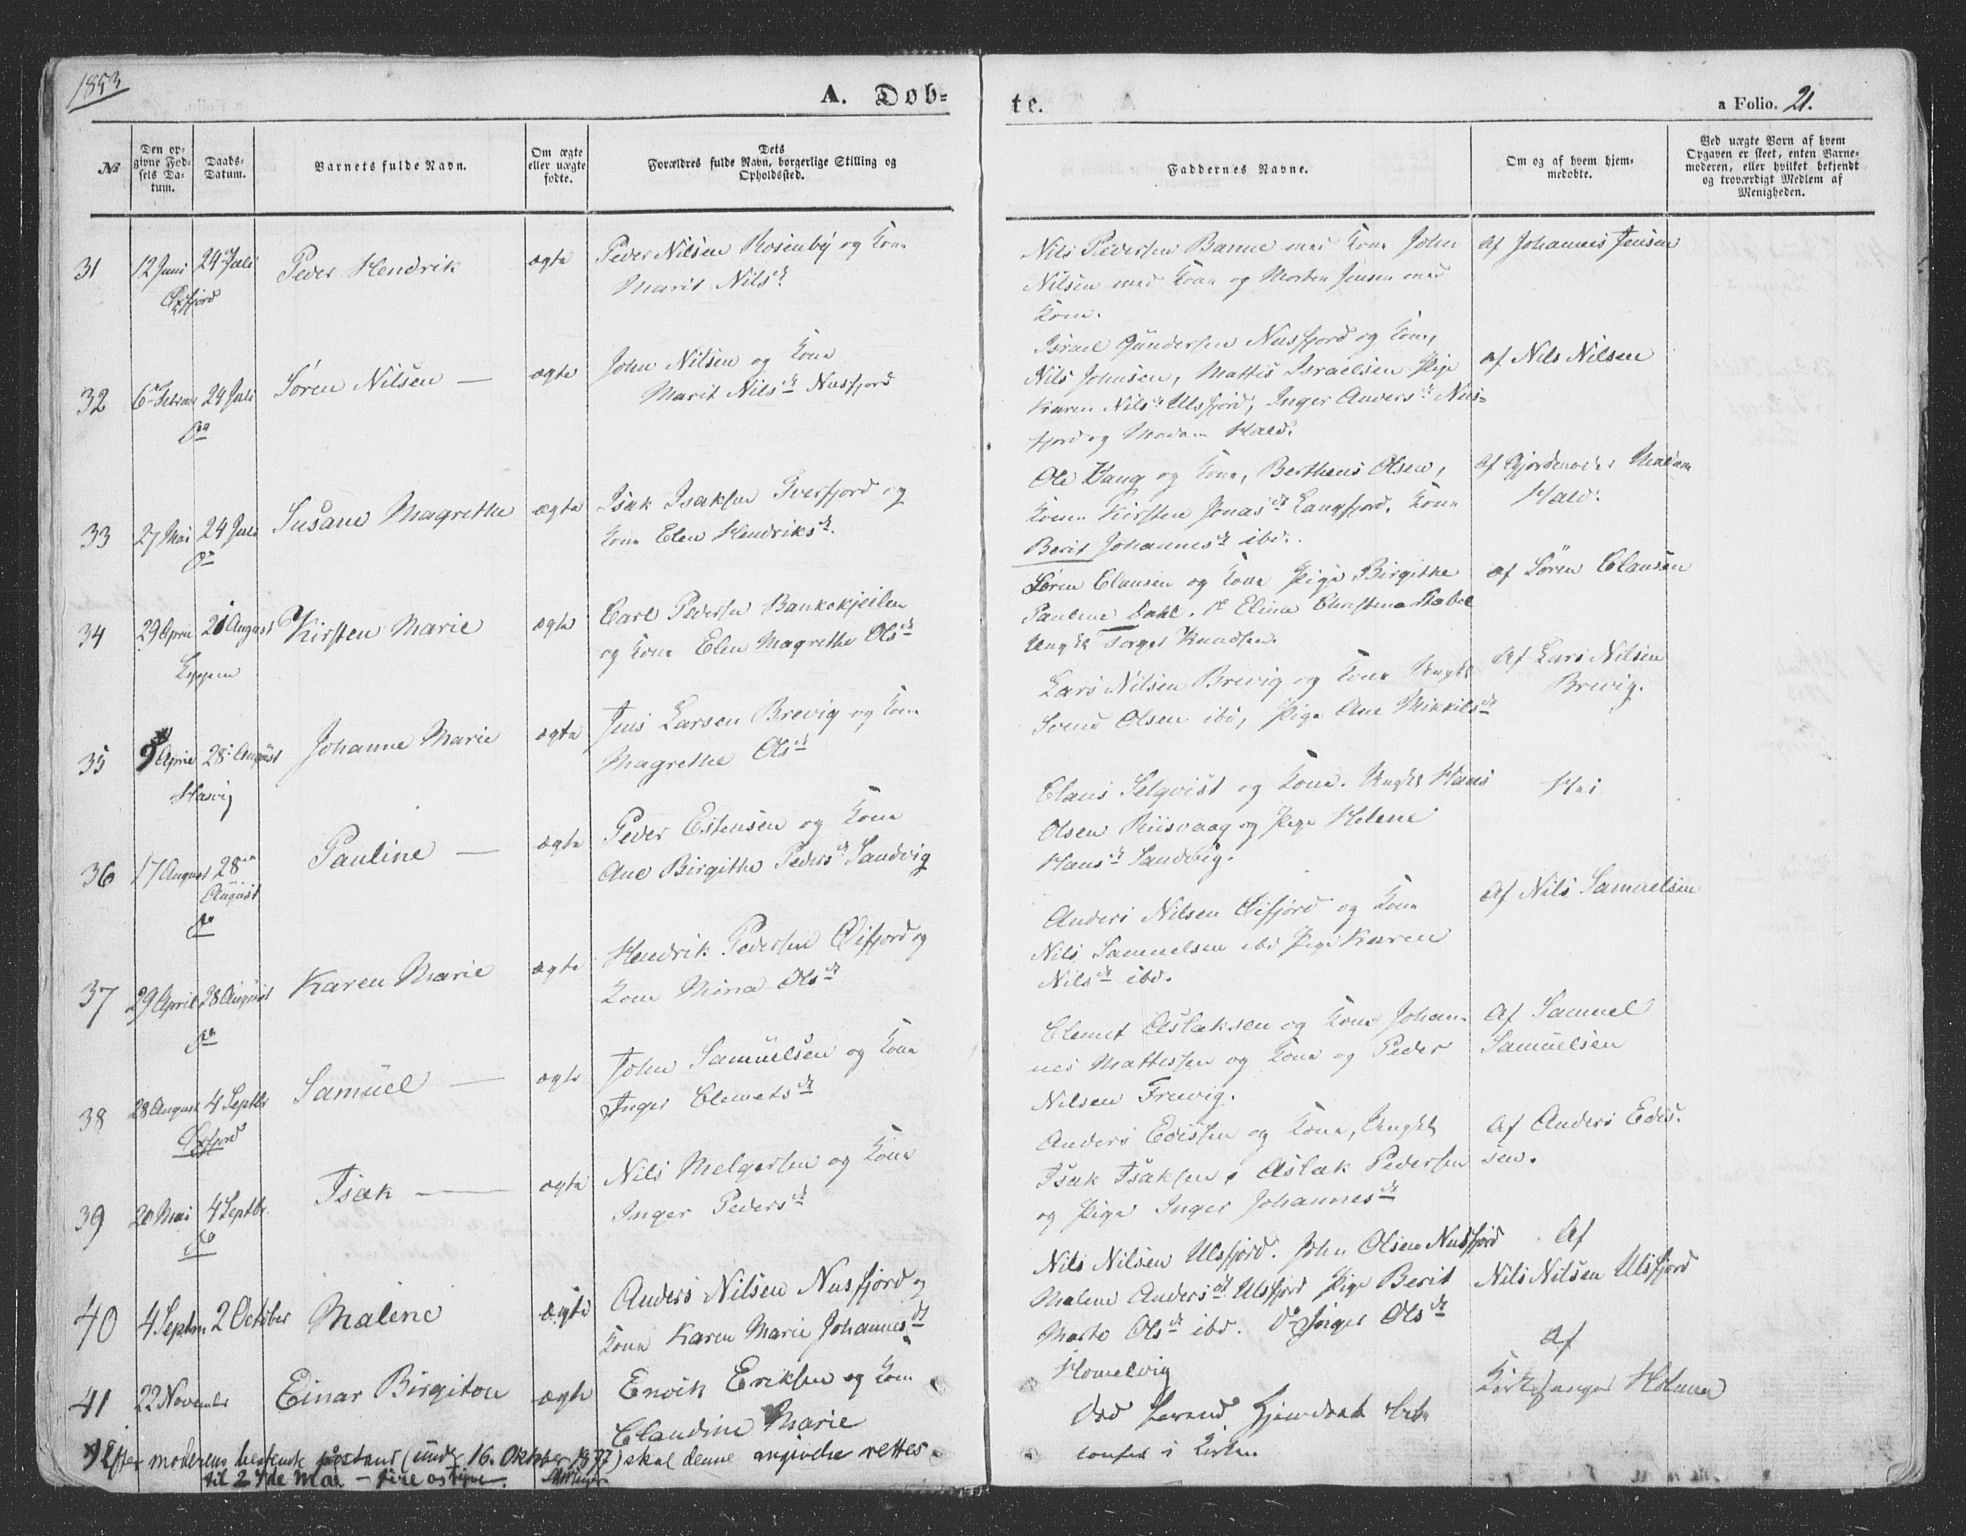 1853
A. Døb-
te.
a Folio. 21.
No
Den op-
givne Fød-
sels Da-
tum.
Daabs-
Datum.
Barnets fulde Navn.
Om ægte
eller uægte
fødte.
Dets
Forældres fulde Navn, borgerlige Stilling og
Opholdssted.
Faddernes Navne.
Om og af hvem hjem-
medøbt.
Ved uægte Børn af hvem
Opgaven er skeet, enten Barne-
moderen, eller hvilket bekjendt
og troværdigt Medlem af
Menigheden.
31 12 Juni 24 Juli Peder Hendrik ægte Peder Nilsen Rosenby og Kone
Øxfjord
Marit Nilsd
Nils Pedersen Banne med Kone John
Nilsen med Kone og Morten Jensen med
Kone.
af Johannes Jensen
32 24 Juli Søren Nilsen — ægte John Nilsen og Kone
Do
Marit Nilsd Nusfjord
Israel Gundersen Nusfjord og Kone,
Nils Johnsen, Mattis Israelsen Pige
Karen Nilsd Ulsfjord, Inger Andersd Nus-
fjord og Madam Hald.
af Nils Nilsen
33 27 Mai 24 Juli Susane Magrethe ægte Isak Isaksen Tverfjord og
Do
Kone Elen Hendriksd.
Ole Vang og Kone, Bertheus Olsen,
Kirsten Jonasd Langfjord. Kone
Berit Johannesd ibd.
af Gjordemoder Madam
Hald.
34 29 April 21 August Kirsten Marie ægte Carl Pedersen Bankekjeilen
Loppen
og Kone Elen Magrethe Olsd
Søren Clausen og Kone Pige Birgithe
Pauline Dahl. Elina Christina
Ungkl Torger Knudsen.
af Søren Clausen
35 9 April 28 August Johanne Marie ægte Jens Larsen Brevig og Kone
Hasvig
Magrethe Olsd
Lars Nilsen Brevig og Kone Ungkl
Svend Olsen ibd, Pige Ane Mikkelsd
Af Lars Nilsen
Brevig.
36 17 August 28
August
Pauline — ægte Peder Estensen og Kone
Do
Ane Birgithe Pedersd Sandvig
Claus Selqvist og Kone. Ungkl Hans
Olsen Riisvaag og Pige Helene
Hansd Sandvig.
Nei
37 29 April 28 August Karen Marie ægte Hendrik Pedersen Øifjord og
Do
Kone Mina Olsd
Anders Nilsen Øifjord og Kone
Nils Samuelsen ibd Pige Karen
Nilsd ibd.
Af Nils Samuelsen
38 28 August 4 Septbr Samuel — ægte John Samuelsen og Kone
Øxfjord
Inger Clemetsd
Clemet Aslaksen og Kone Johan-
nes Mattissen og Kone og Peder
Nilsen Truvig.
Af Samuel
Samuelsen
39 20 Mai 4 Septbr. Isak — ægte Nils Melgersen og Kone
Do
Inger Pedersd
Anders Edissen og Kone, Ungkl
Isak Isaksen, Aslak Pedersen
og Pige Inger Johannesd
Af Anders Edis-
sen.
40 4 Septm 2 October Malene ægte Anders Nilsen Nusfjord og
Kone Karen Marie Johannesd
Nils Nilsen Ulsfjord. John Olsen Nusfjord
Malene Andersd Ulsfjord Pige Berit
Marte Olsd ibd. Do Inger Olsd
Homelvig
Af
Nils Nilsen Ulsfjord
41 22 November Einar Birgiton ægte Envik Eriksen og Kone
Claudine Marie
i Kirken
Af
Kirkesanger Holmen
x) Efter moderens bestemte påstand (under 16. Oktober 1877) skal denne angivelse rettes
til 24de Mai — fire og tyve.